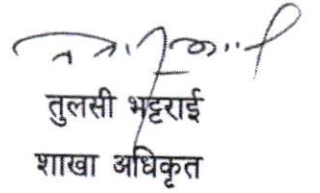 तुलसी भट्टराई
शाखा अधिकृत